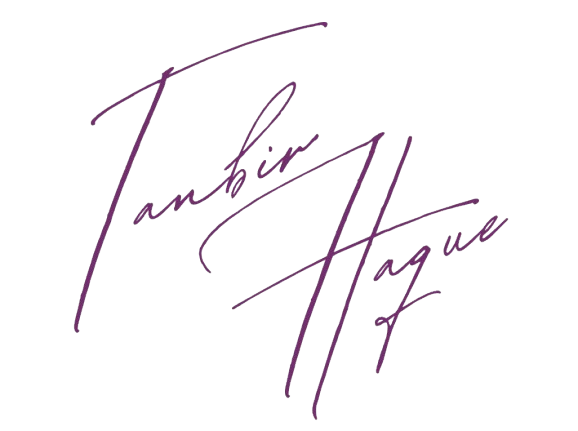 Tanbir
Haque